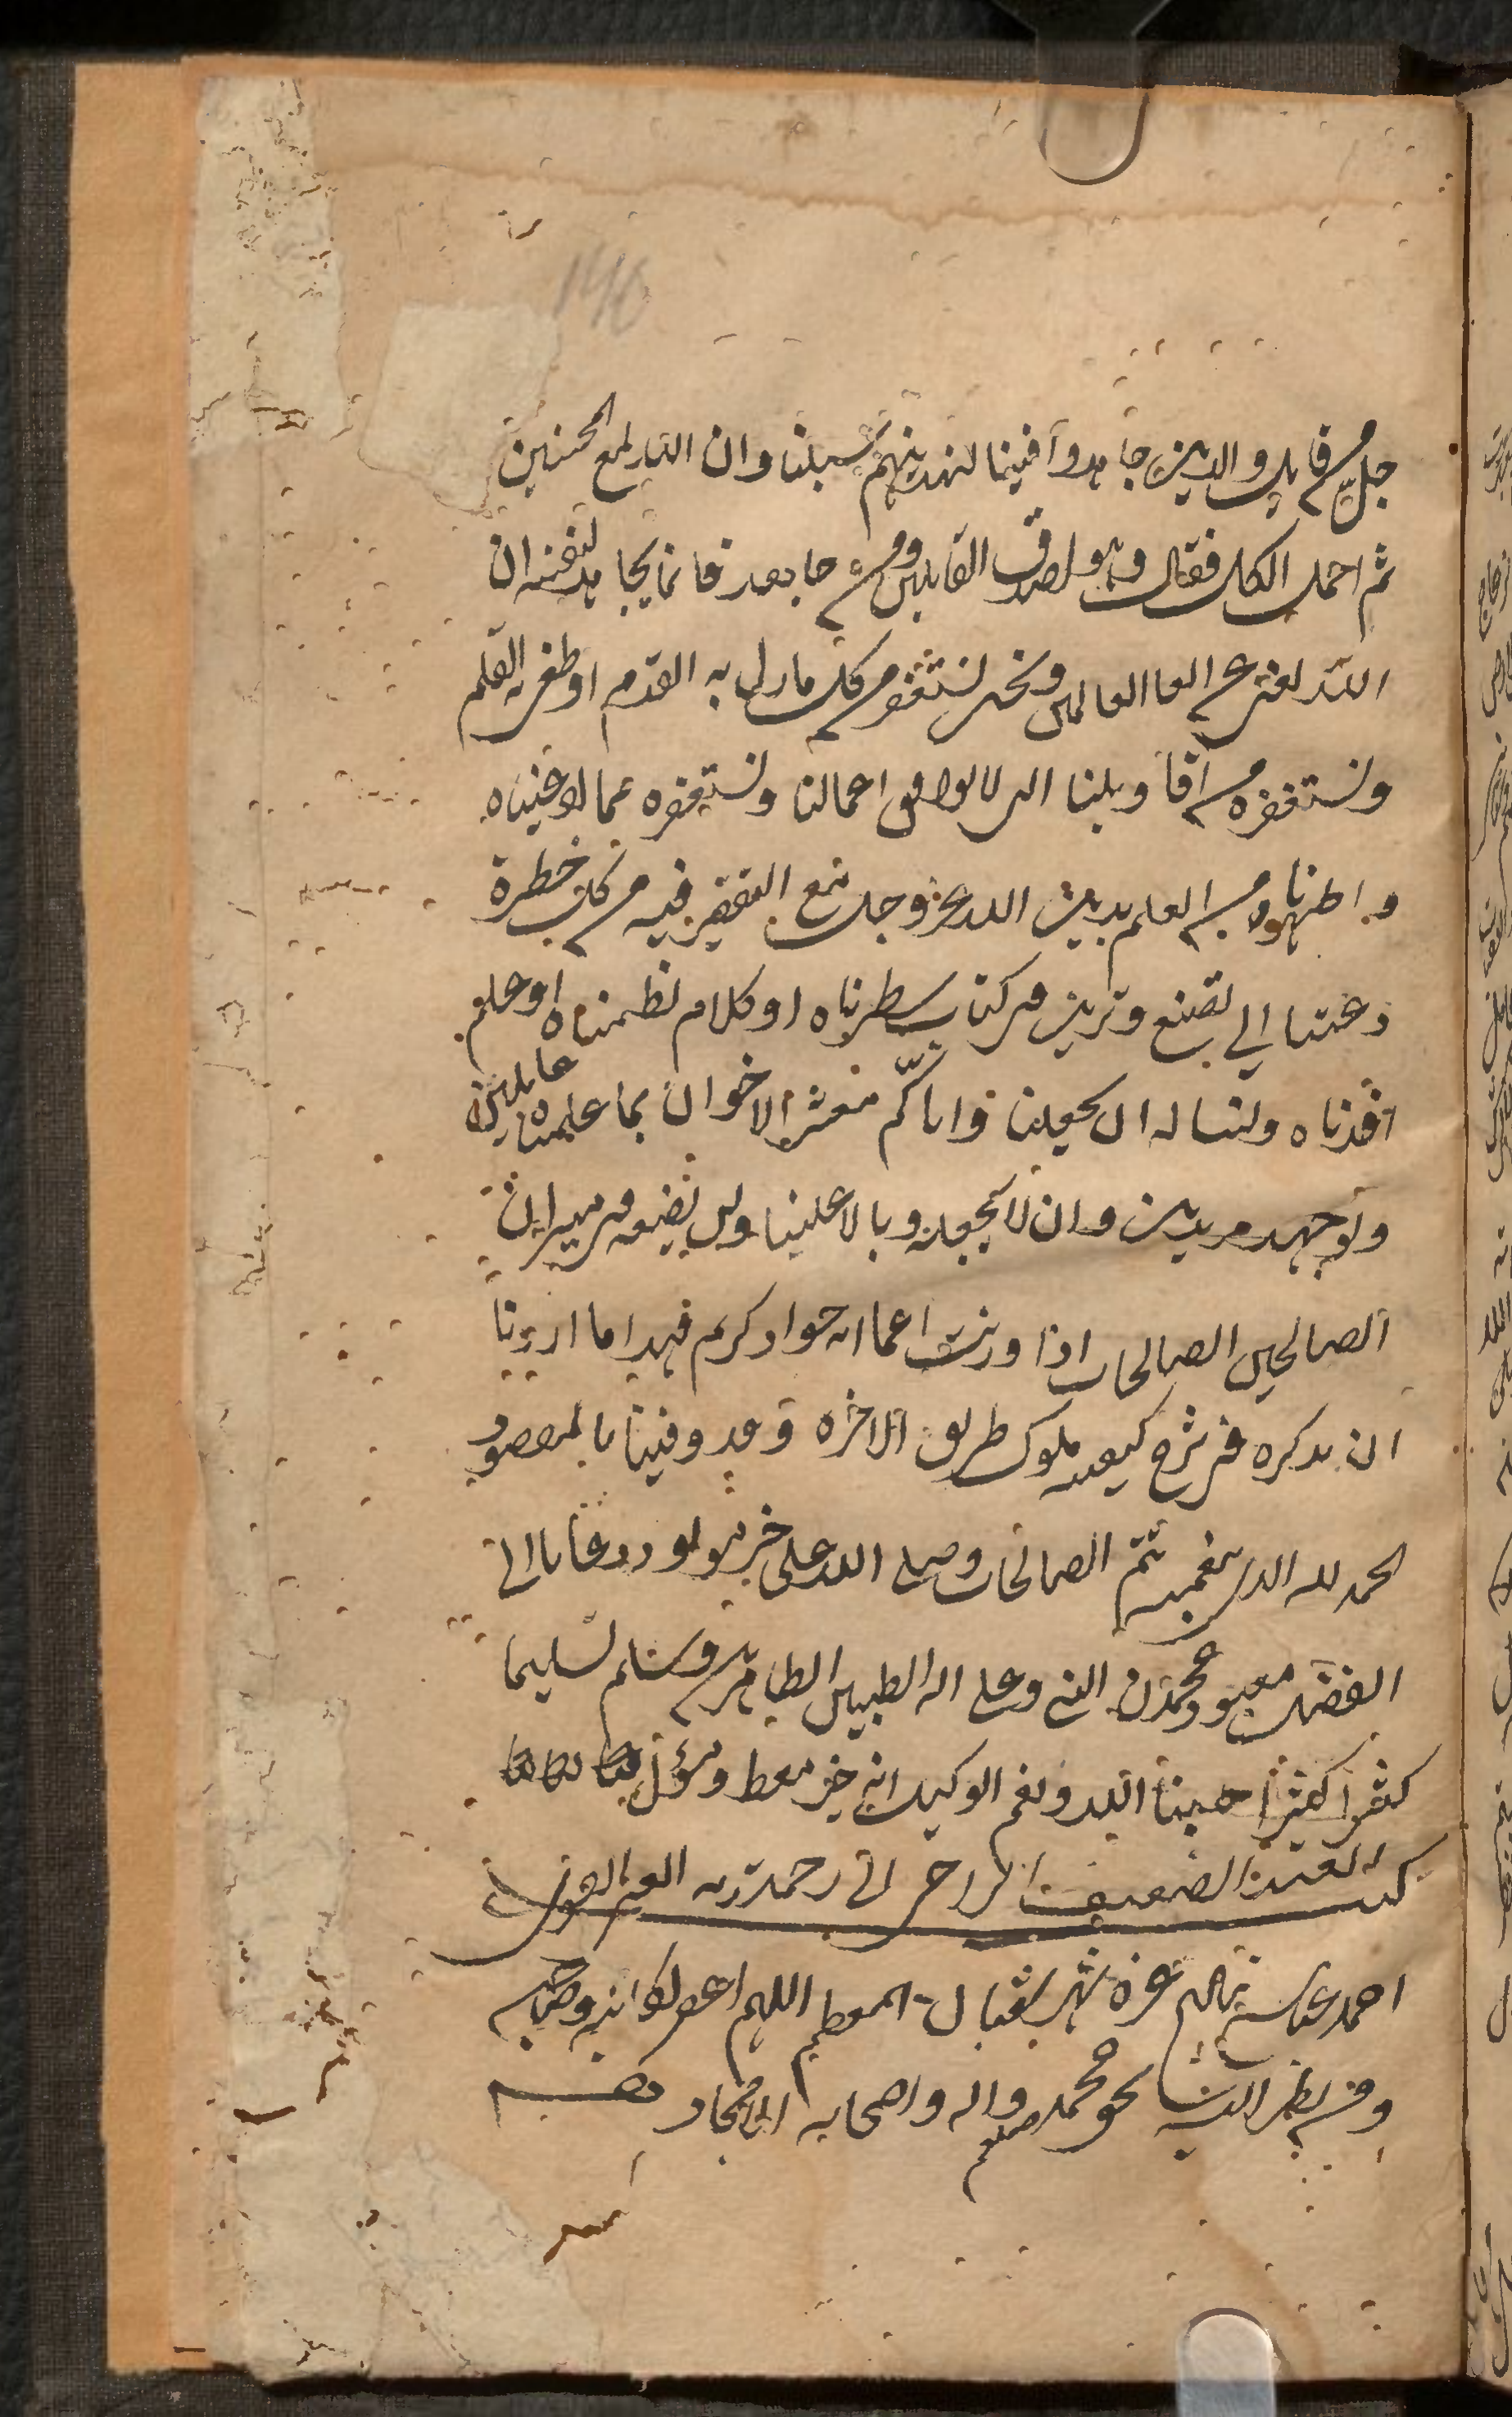 جل من قايل والذين جاهدوا فينا لنهدينهم سبلنا وان الله لمع المحسنين
ثم اجمل الكل فقال وهو اصدق القايلين ومن جاهد فانما يجاهد لنفسه ان
الله لغني عن العالمين ونحن نستغفر من كل ما زل به القدم او طغى به القلم
ونستغفره من اقاويلنا التي لا توافق اعمالنا ونستغفره عما ادعيناه
واظهرناه من العلم بدين الله عز وجل مع التقصير فيه من كل خطرة
دعتنا الي تصنع وتزين في كتاب سطرناه او كلام نظمناه او علم
افدناه ونساله ان يجعلنا واياكم معشر الاخوان بما علمناه عاملين
ولوجهه مريدين وان لا يجعله وبالا علينا وان يضعه في ميزان
الصالحين الصالحات اذا وزنت اعمالنا انه جواد كريم فهذا ما اردنا
ان نذكره في شرح كيفية سلوك طريق الاخرة وقد وفينا بالمقصود
الحمد لله الذي بنعمته تتم الصالحات وصلى الله على خير مولود دعانا الى
افضل معبود محمدن النبي وعلى اله الطيبين الطاهرين وسلم تسليما
كثيرا كثيرا حسبنا الله ونعم الوكيل انه خير معط ومسؤل
كتبه العبد الضعيف الراجي الى رحمة ربه الغني القوي
احمد عباس غرة شهر شعبان المعظم اللهم اغفر لكاتبه وصاحبه
ومن نظر اليه بحق محمد صلعم واله واصحابه الامجاد